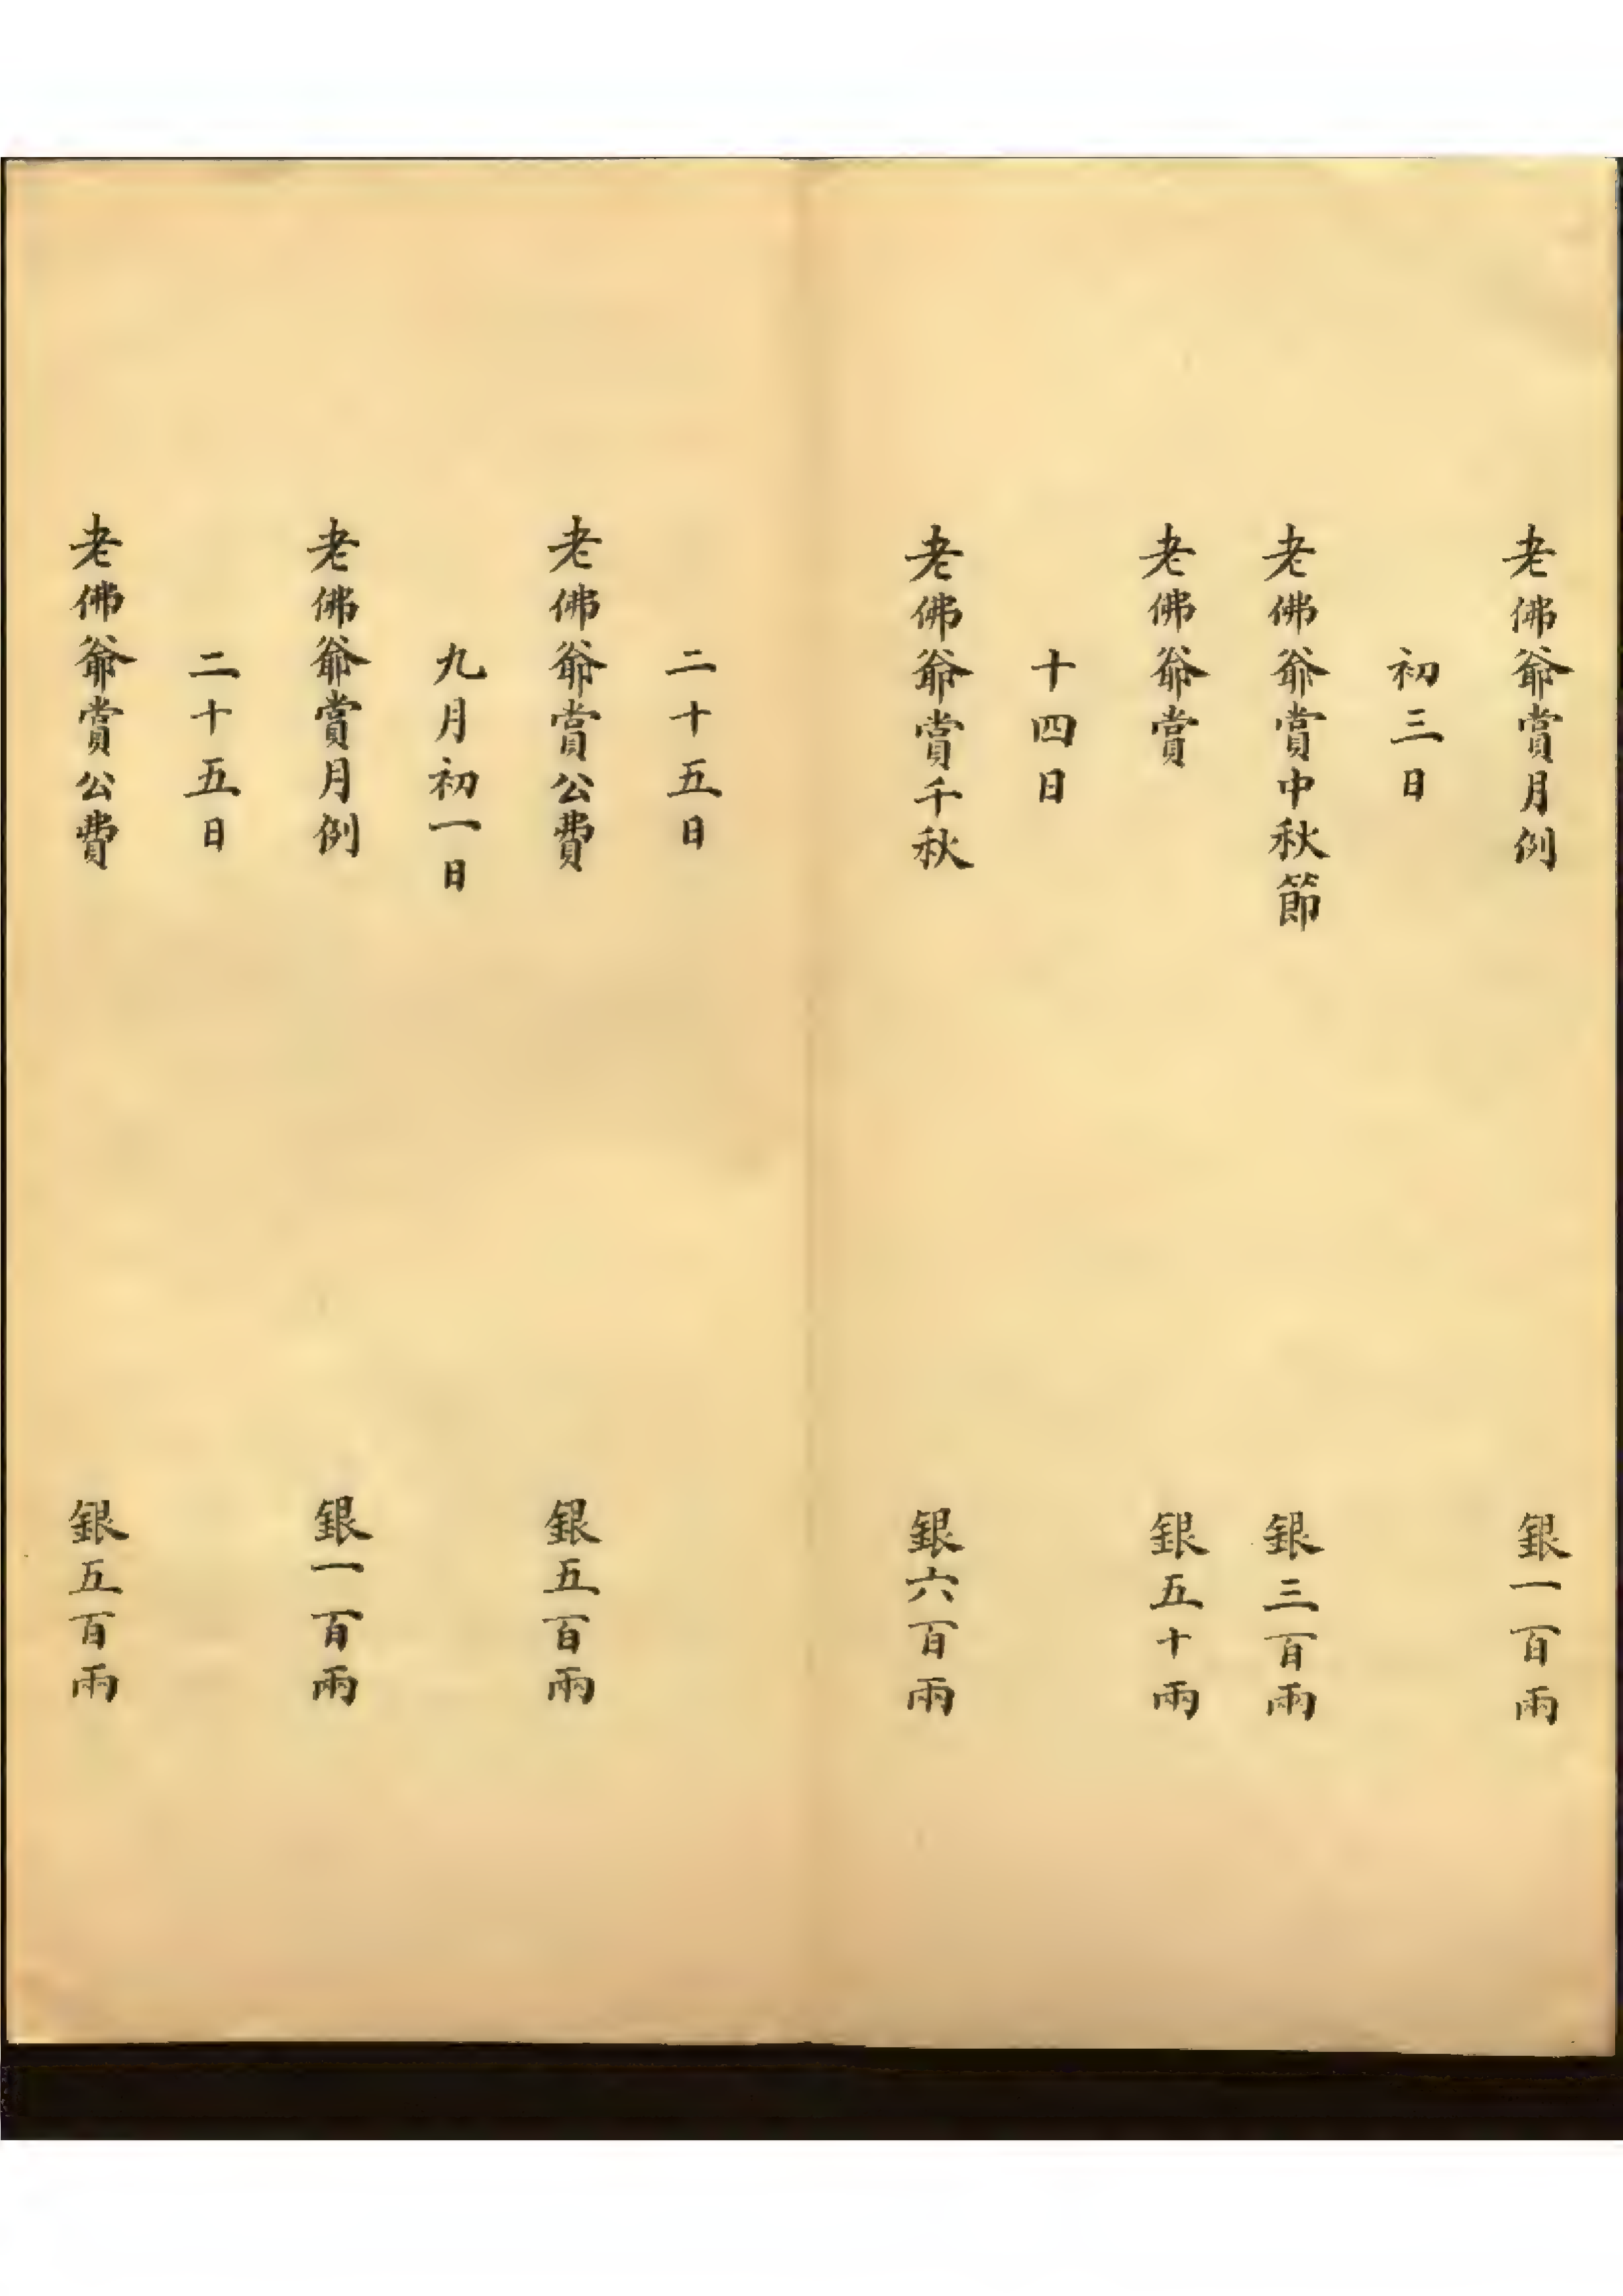 老佛爺賞月例 銀一百兩
初三日
老佛爺賞中秋節 銀三百兩
老佛爺賞 銀五十兩
十四日
老佛爺賞千秋 銀六百兩
二十五日
老佛爺賞公費 銀五百兩
九月初一日
老佛爺賞月例 銀一百兩
二十五日
老佛爺賞公費 銀五百兩